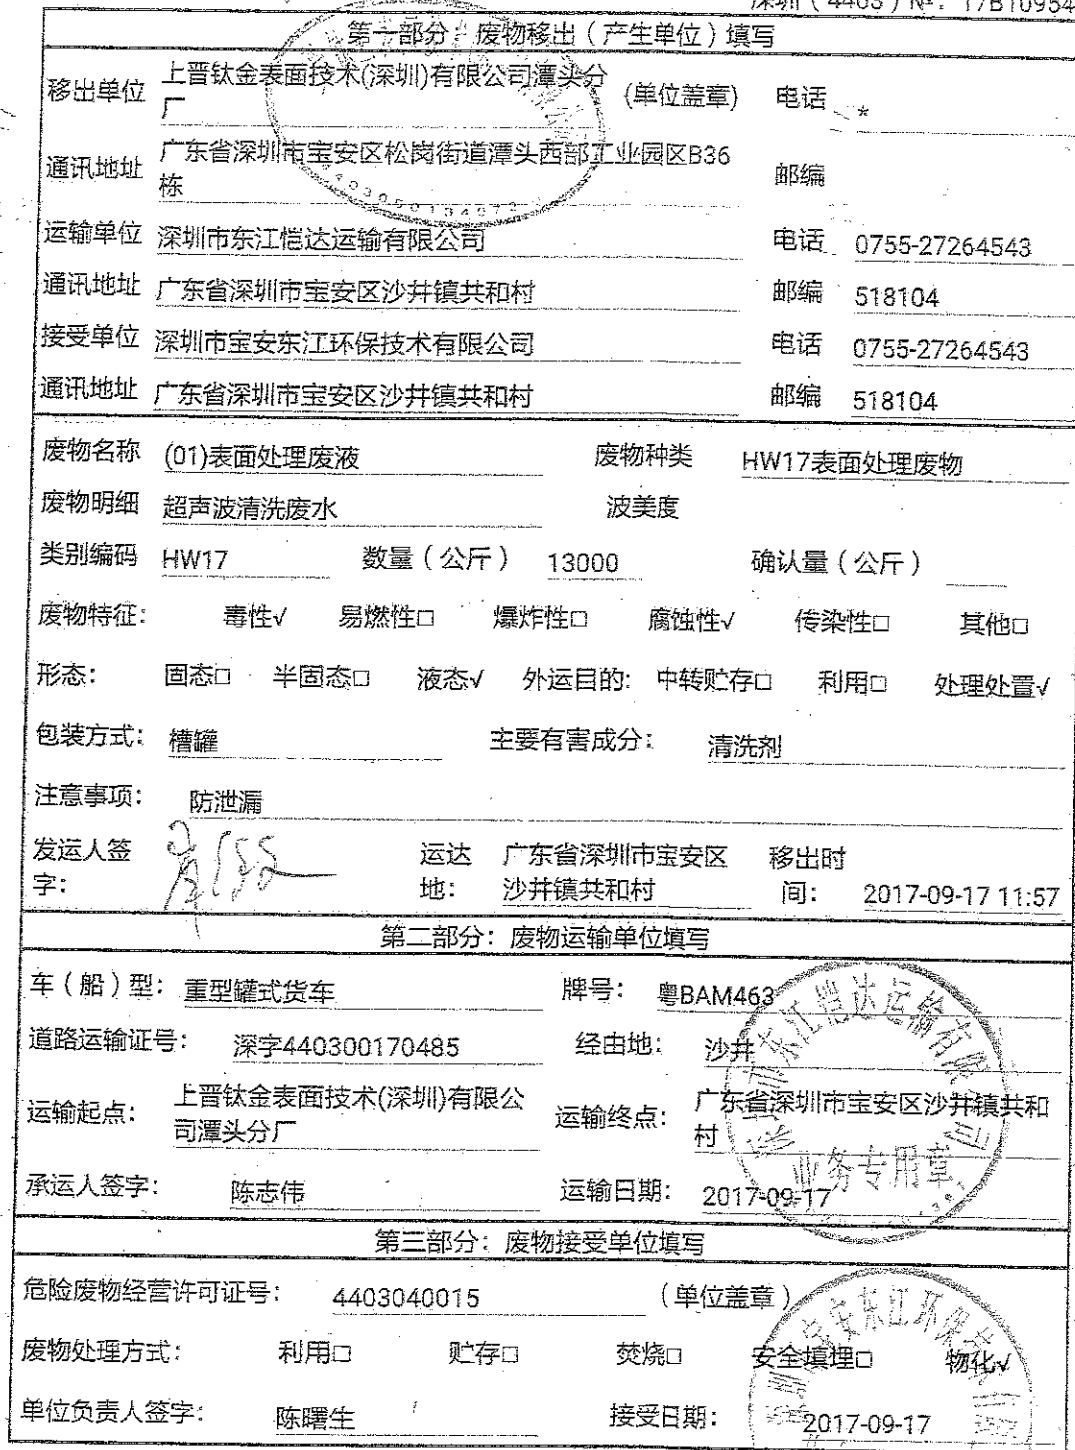 深圳（4403）№：17B10954
第一部分：废物移出（产生单位）填写
移出单位 上晋钛金表面技术(深圳)有限公司潭头分厂 (单位盖章) 电话 *
通讯地址 广东省深圳市宝安区松岗街道潭头西部工业园区B36栋 邮编
运输单位 深圳市东江恺达运输有限公司 电话 0755-27264543
通讯地址 广东省深圳市宝安区沙井镇共和村 邮编 518104
接受单位 深圳市宝安东江环保技术有限公司 电话 0755-27264543
通讯地址 广东省深圳市宝安区沙井镇共和村 邮编 518104
废物名称 (01)表面处理废液 废物种类 HW17表面处理废物
废物明细 超声波清洗废水 波美度
类别编码 HW17 数量（公斤） 13000 确认量（公斤）
废物特征： 毒性√ 易燃性□ 爆炸性□ 腐蚀性√ 传染性□ 其他□
形态： 固态□ 半固态□ 液态√ 外运目的: 中转贮存□ 利用□ 处理处置√
包装方式： 槽罐 主要有害成分： 清洗剂
注意事项： 防泄漏
发运人签字： 运达地： 广东省深圳市宝安区沙井镇共和村 移出时间： 2017-09-17 11:57
第二部分：废物运输单位填写
车（船）型： 重型罐式货车 牌号： 粤BAM463
道路运输证号： 深字440300170485 经由地： 沙井
运输起点： 上晋钛金表面技术(深圳)有限公司潭头分厂 运输终点： 广东省深圳市宝安区沙井镇共和村
业务专用章
承运人签字： 陈志伟 运输日期： 2017-09-17
第三部分：废物接受单位填写
危险废物经营许可证号： 4403040015 （单位盖章）
废物处理方式： 利用□ 贮存□ 焚烧□ 安全填埋□ 物化√
单位负责人签字： 陈曙生 接受日期： 2017-09-17